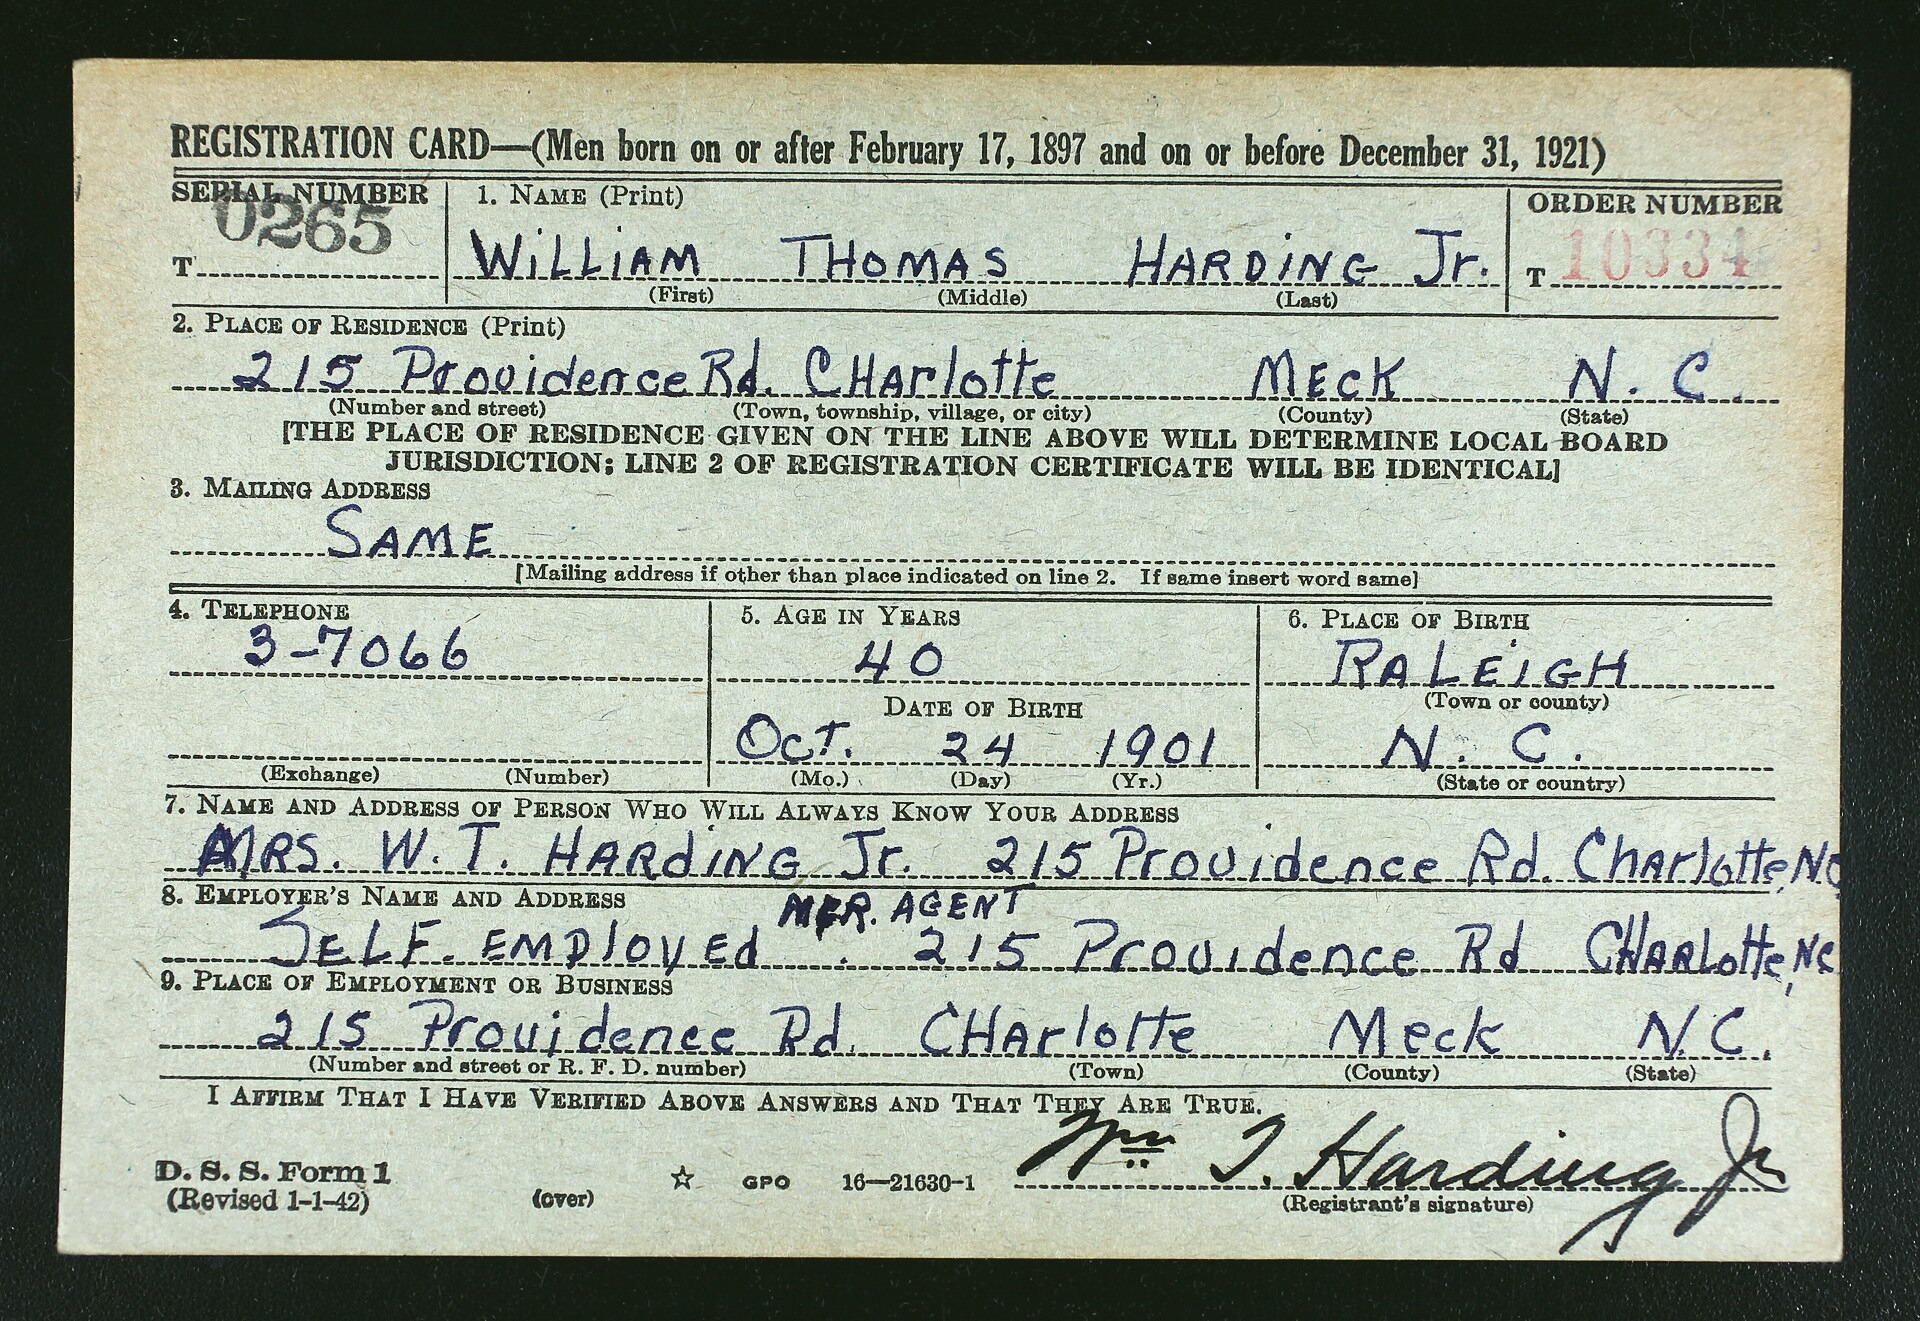 REGISTRATION CARD—(Men born on or after February 17, 1897 and on or before December 31, 1921)
SERIAL NUMBER 1. NAME (Print) ORDER NUMBER
T 0265 WiLLiAM THOMAS HARDiNG Jr. T 10334
(First) (Middle) (Last)
2. PLACE OF RESIDENCE (Print)
215 Providence Rd. CHArlotte MECK N. C.
(Number and street) (Town, township, village, or city) (County) (State)
[THE PLACE OF RESIDENCE GIVEN ON THE LINE ABOVE WILL DETERMINE LOCAL BOARD
JURISDICTION; LINE 2 OF REGISTRATION CERTIFICATE WILL BE IDENTICAL]
3. MAILING ADDRESS
SAME
[Mailing address if other than place indicated on line 2. If same insert word same]
4. TELEPHONE 5. AGE IN YEARS 6. PLACE OF BIRTH
3-7066 40 RALEiGH
(Town or county)
DATE OF BIRTH
OcT. 24 1901 N. C.
(Exchange) (Number) (Mo.) (Day) (Yr.) (State or country)
7. NAME AND ADDRESS OF PERSON WHO WILL ALWAYS KNOW YOUR ADDRESS
MRS. W. T. HARdiNG Jr. 215 Providence Rd. Charlotte, NC
8. EMPLOYER'S NAME AND ADDRESS
AGENT
SELF. EMPloyEd . 215 Providence Rd CHARLotte, NC
9. PLACE OF EMPLOYMENT OR BUSINESS
215 Providence Rd. CHArlotte Meck N.C.
(Number and street or R. F. D. number) (Town) (County) (State)
I AFFIRM THAT I HAVE VERIFIED ABOVE ANSWERS AND THAT THEY ARE TRUE.
Wm T. Harding Jr
D. S. S. Form 1
(Revised 1-1-42) (over) GPO 16—21630-1 (Registrant's signature)